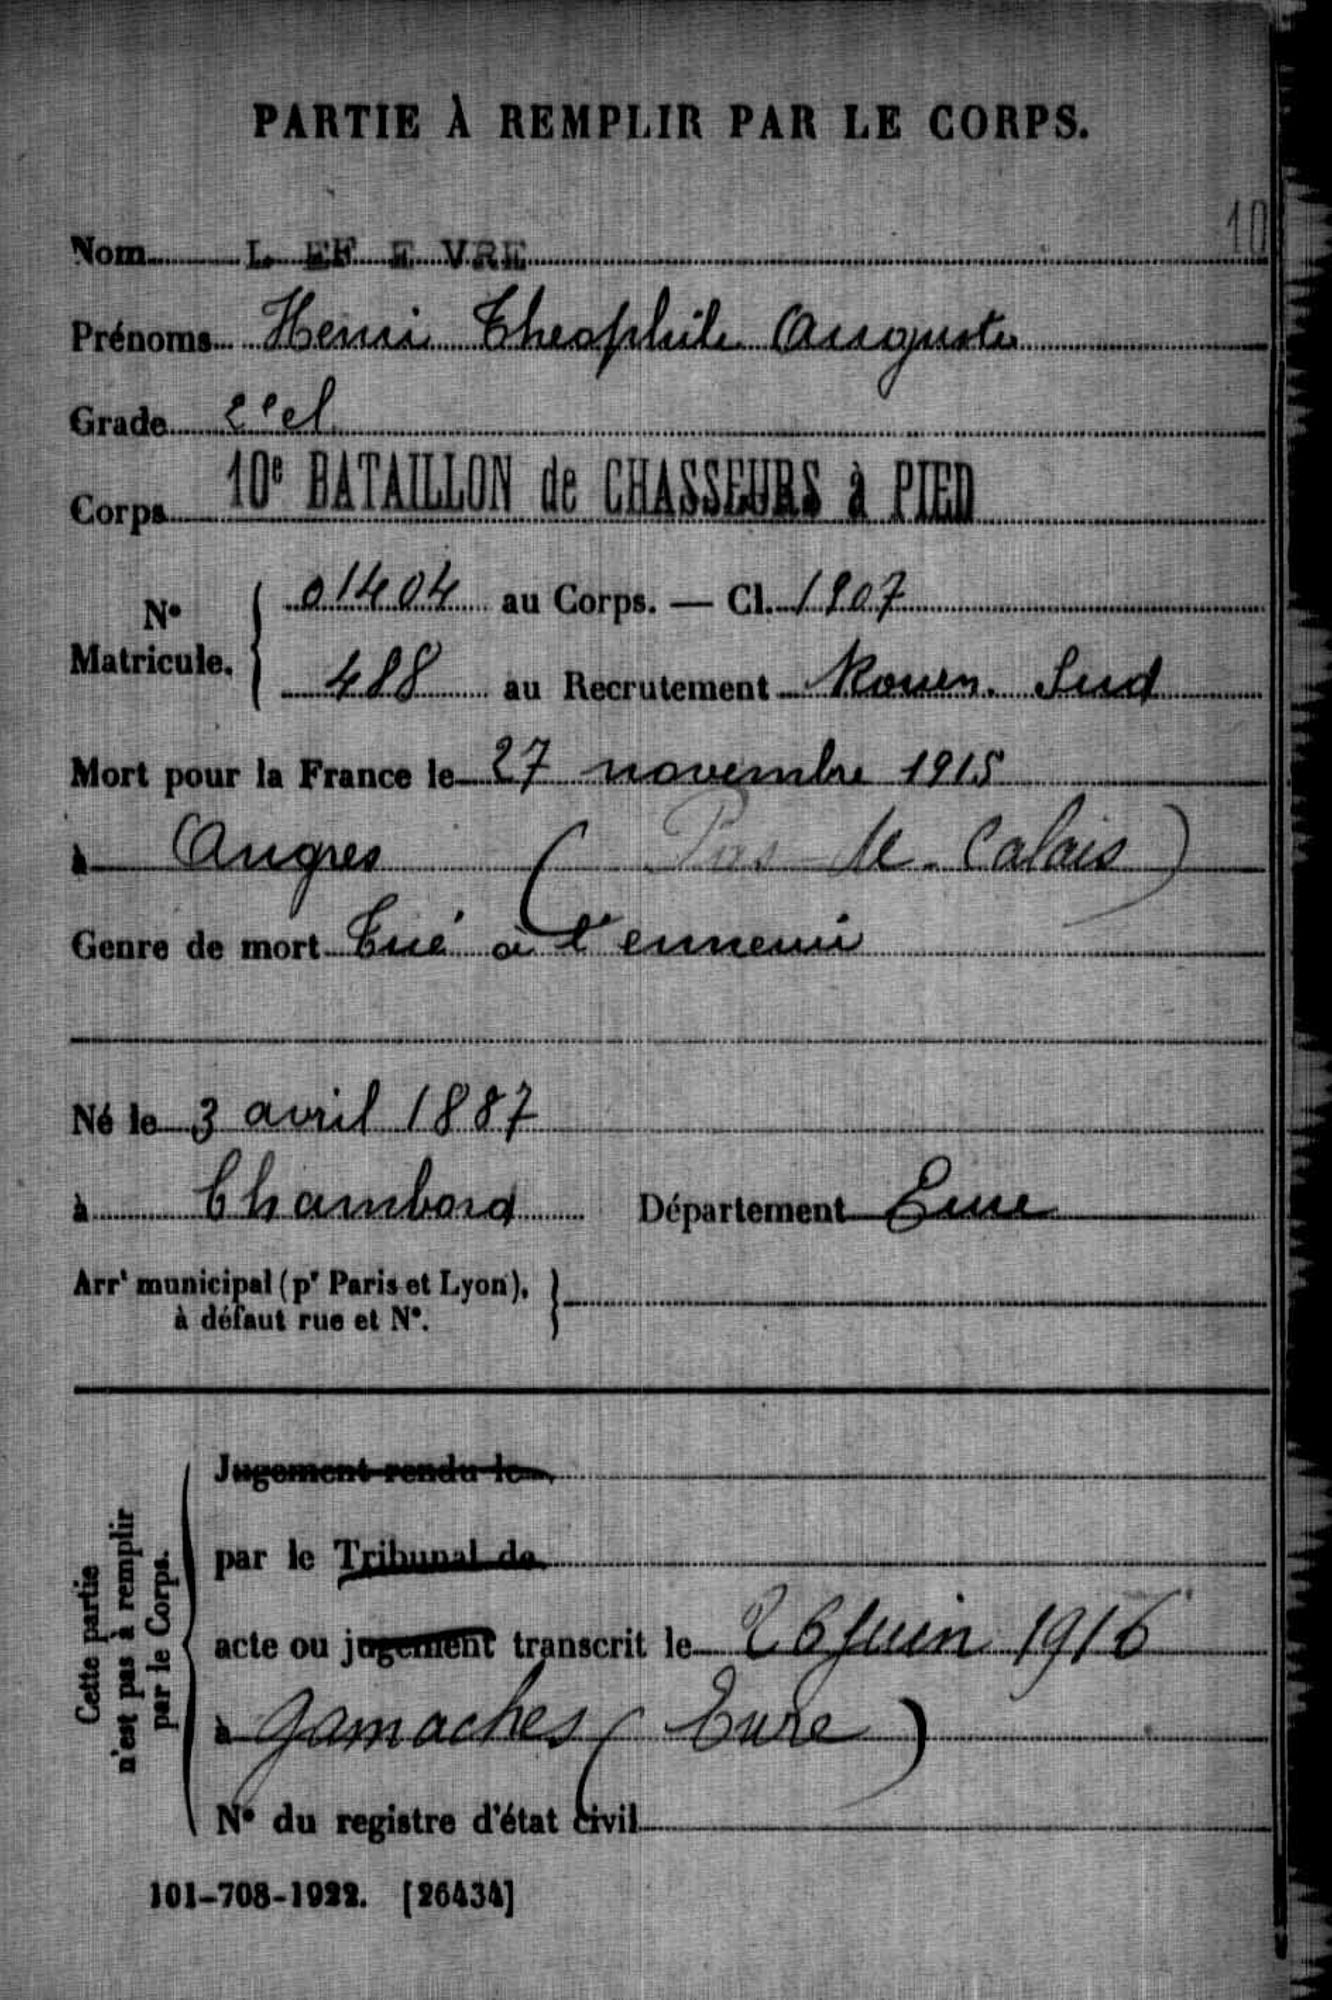 PARTIE À REMPLIR PAR LE CORPS.
10
Nom LEFEVRE
Prénoms Henri Théophile Auguste
Grade 2e cl
Corps 10e BATAILLON de CHASSEURS à PIED
No Matricule. { 01404 au Corps. — Cl. 1907
488 au Recrutement Rouen Sud
Mort pour la France le 27 novembre 1915
à Angres (Pas-de-Calais)
Genre de mort Tué à l'ennemi
Né le 3 avril 1887
à Chambord Département Eure
Arrt municipal (pr Paris et Lyon), }
à défaut rue et No.
Cette partie
n'est pas à remplir
par le Corps.
Jugement rendu le
par le Tribunal de
acte ou jugement transcrit le 26 Juin 1916
à Gamaches (Eure)
No du registre d'état civil
101-708-1922. [26434]